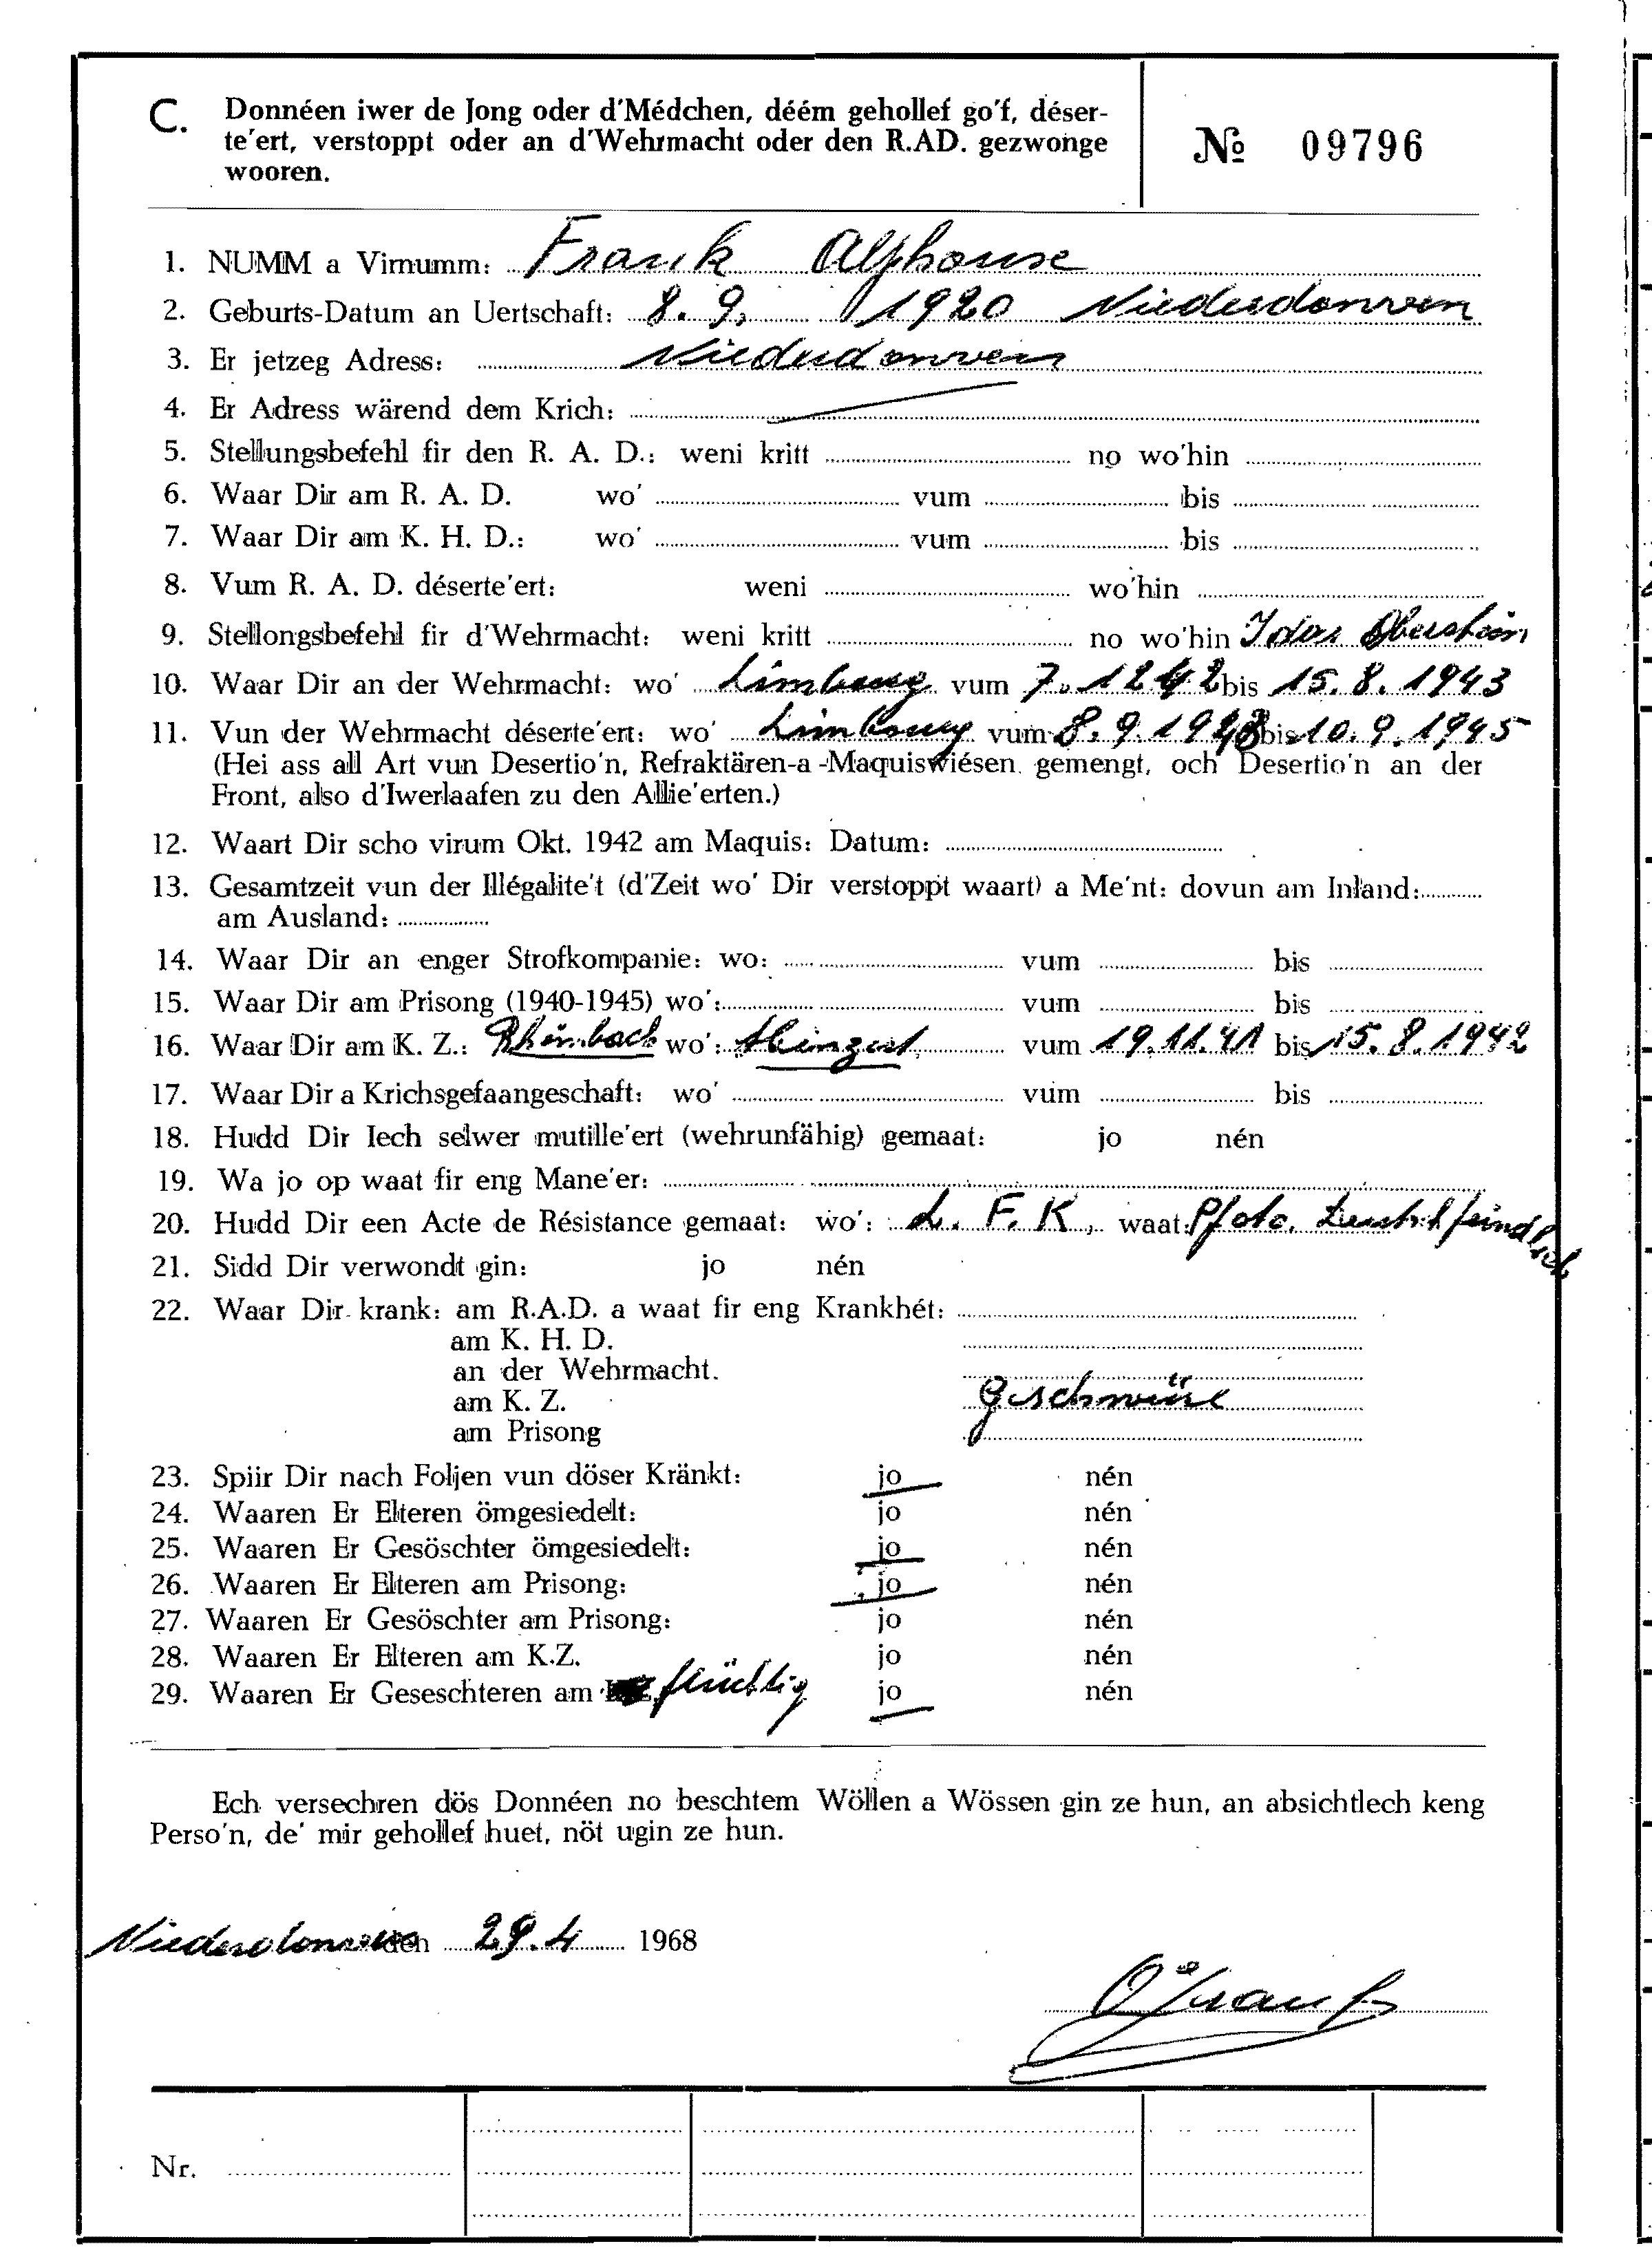 C. Donnéen iwer de Jong oder d'Médchen, déém gehollef go'f, déser-
te'ert, verstoppt oder an d'Wehrmacht oder den R.AD. gezwonge
wooren.
№ 09796
1. NUMM a Virnumm: Frank Alphonse
2. Geburts-Datum an Uertschaft: 8. 9. 1920 Niederdonven
3. Er jetzeg Adress: Niederdonven
4. Er Adress wärend dem Krich:
5. Stellungsbefehl fir den R. A. D.: weni kritt no wo'hin
6. Waar Dir am R. A. D. wo' vum bis
7. Waar Dir am K. H. D.: wo' vum bis
8. Vum R. A. D. déserte'ert: weni wo'hin
9. Stellongsbefehl fir d'Wehrmacht: weni kritt no wo'hin Idar Oberstein
10. Waar Dir an der Wehrmacht: wo' Limburg vum 7. 12 42 bis 15. 8. 1943
11. Vun der Wehrmacht déserte'ert: wo' Limburg vum 8. 9. 1943 bis 10. 9. 1945
(Hei ass all Art vun Desertio'n, Refraktären-a -Maquiswiésen gemengt, och Desertio'n an der
Front, also d'Iwerlaafen zu den Allie'erten.)
12. Waart Dir scho virum Okt. 1942 am Maquis: Datum:
13. Gesamtzeit vun der Illégalite't (d'Zeit wo' Dir verstoppt waart) a Me'nt: dovun am Inland:
am Ausland:
14. Waar Dir an enger Strofkompanie: wo: vum bis
15. Waar Dir am Prisong (1940-1945) wo': vum bis
16. Waar Dir am K. Z.: Rheinbach wo': Hinzert vum 19. 11. 41 bis 15. 8. 1942
17. Waar Dir a Krichsgefaangeschaft: wo' vum bis
18. Hudd Dir Iech selwer mutille'ert (wehrunfähig) gemaat: jo nén
19. Wa jo op waat fir eng Mane'er:
20. Hudd Dir een Acte de Résistance gemaat: wo': L. F. K, waat:
21. Sidd Dir verwondt gin: jo nén
22. Waar Dir krank: am R.A.D. a waat fir eng Krankhét:
am K. H. D.
an der Wehrmacht.
am K. Z. Geschwüre
am Prisong
23. Spiir Dir nach Foljen vun döser Kränkt: jo nén
24. Waaren Er Elteren ömgesiedelt: jo nén
25. Waaren Er Gesöschter ömgesiedelt: jo nén
26. Waaren Er Elteren am Prisong: jo nén
27. Waaren Er Gesöschter am Prisong: jo nén
28. Waaren Er Elteren am K.Z. jo nén
29. Waaren Er Geseschteren am flüchtig jo nén
Ech versechren dös Donnéen no beschtem Wöllen a Wössen gin ze hun, an absichtlech keng
Perso'n, de' mir gehollef huet, nöt ugin ze hun.
Niederdonven den 29. 4 1968
Nr.